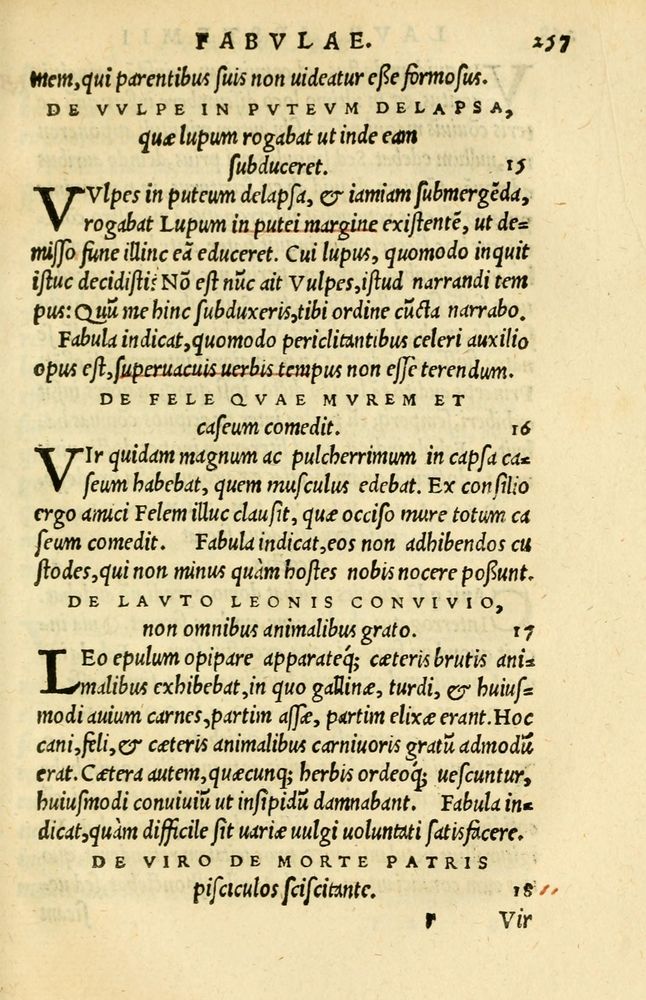 FABVLAE. 257
mem, qui parentibus suis non uideatur eße formosus.
DE VVLPE IN PVTEVM DELAPSA,
quæ lupum rogabat ut inde eam
subduceret. 15
VVlpes in puteum delapsa, & iamiam submergēda,
rogabat Lupum in putei margine existentē, ut de=
misso fune illinc eā educeret. Cui lupus, quomodo inquit
istuc decidisti? Nō est nūc ait Vulpes, istud narrandi tem
pus: Quū me hinc subduxeris, tibi ordine cūcta narrabo.
Fabula indicat, quomodo periclitantibus celeri auxilio
opus est, superuacuis uerbis tempus non esse terendum.
DE FELE QVAE MVREM ET
caseum comedit. 16
VIr quidam magnum ac pulcherrimum in capsa ca=
seum habebat, quem musculus edebat. Ex consilio
ergo amici Felem illuc clausit, quæ occiso mure totum ca
seum comedit. Fabula indicat, eos non adhibendos cu
stodes, qui non minus quàm hostes nobis nocere poßunt.
DE LAVTO LEONIS CONVIVIO,
non omnibus animalibus grato. 17
LEo epulum opipare apparateq́; cæteris brutis ani=
malibus exhibebat, in quo gallinæ, turdi, & huius=
modi auium carnes, partim assæ, partim elixæ erant. Hoc
cani, feli, & cæteris animalibus carniuoris gratū admodū
erat. Cætera autem, quæcunq; herbis ordeoq́; uescuntur,
huiusmodi conuiuiū ut insipidū damnabant. Fabula in=
dicat, quàm difficile sit uariæ uulgi uoluntati satisfacere.
DE VIRO DE MORTE PATRIS
pisciculos sciscitante. 18
r Vir